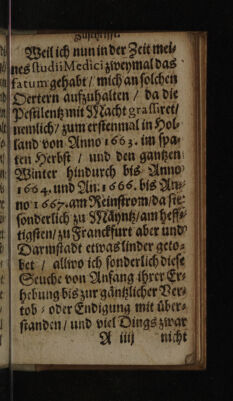 Zuschrifft.
Weil ich nun in der Zeit mei-
nes studii Medici zweymal das
fatum gehabt / mich an solchen
Oertern aufzuhalten / da die
Pestilentz mit Macht grassiret /
nemlich / zum erstenmal in Hol-
land von Anno 1663. im spa-
ten Herbst / und den gantzen
Winter hindurch bis Anno
1664. und An: 1666. bis An-
no 1667. am Reinstrom / da sie
sonderlich zu Mäyntz / am heff-
tigsten / zu Franckfurt aber und
Darmstadt etwas linder geto-
bet / allwo ich sonderlich diese
Seuche von Anfang ihrer Er-
hebung bis zur gäntzlicher Ver-
tob- oder Endigung mit über-
standen / und viel Dings zwar
A iiij nicht